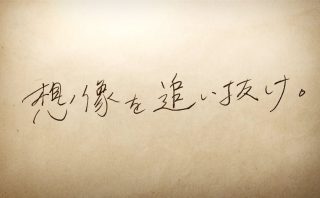 想像を追い抜け。